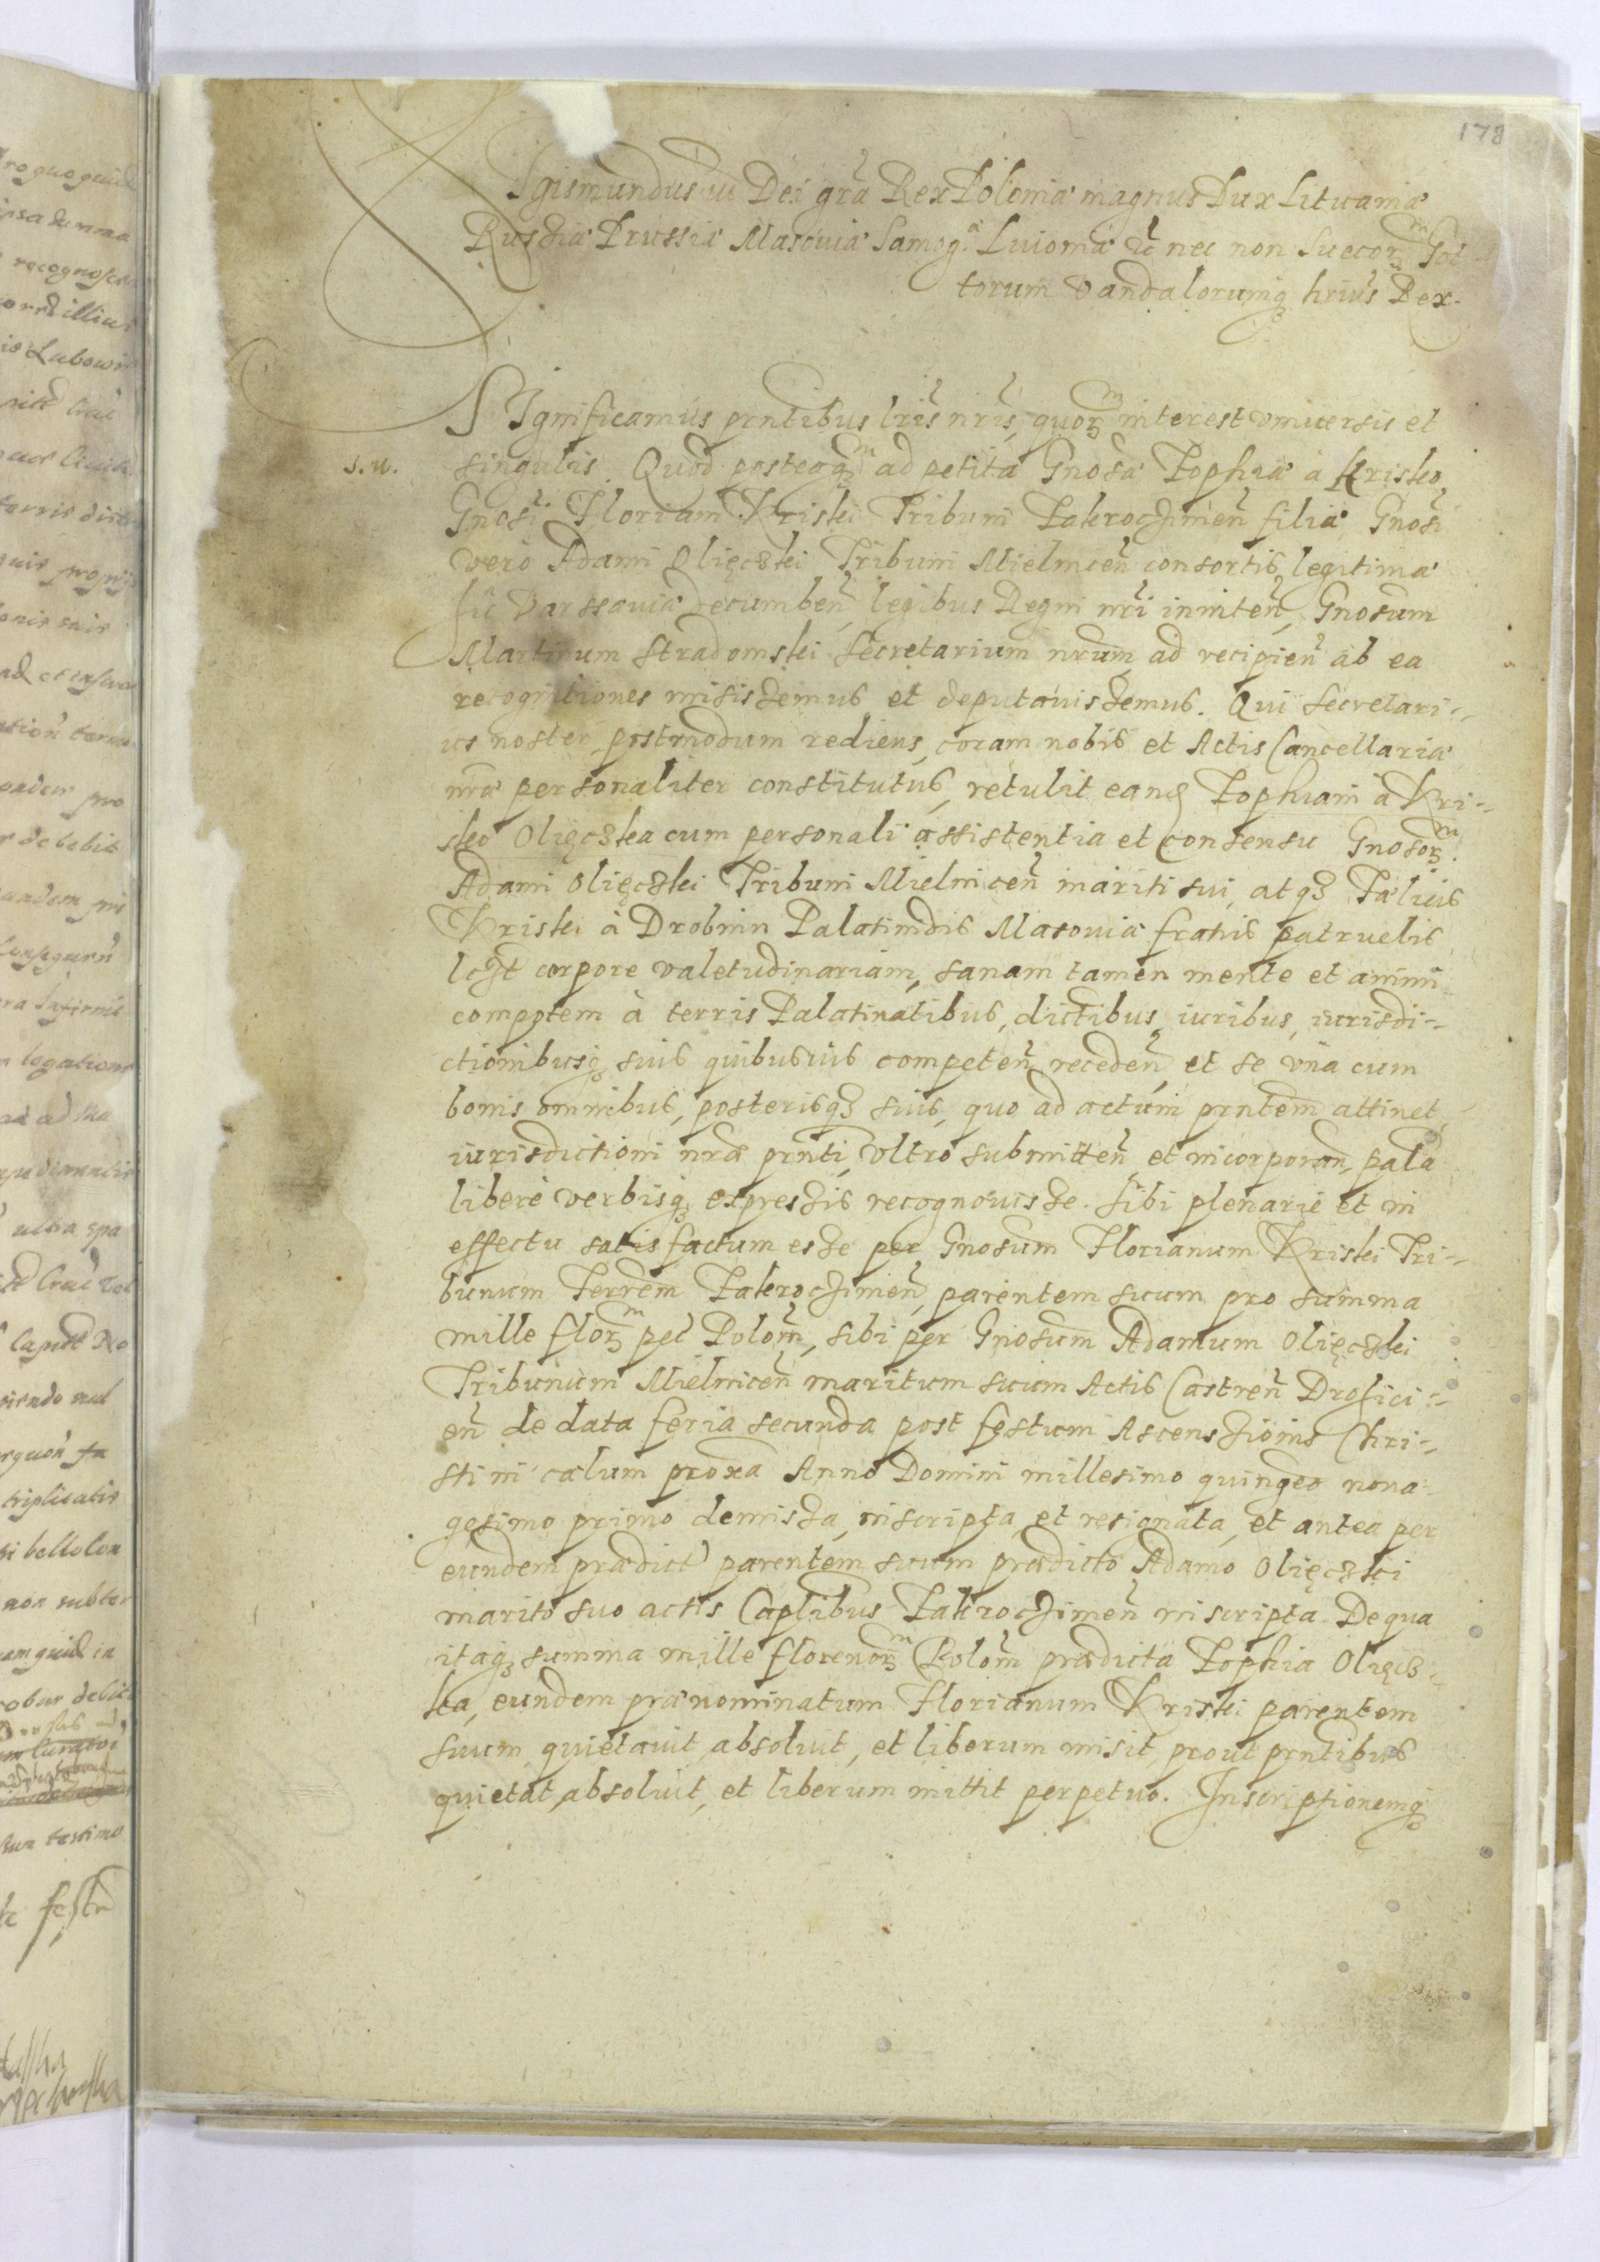 178
Sigismundus III Dei gr̃a Rex Poloniæ magnus Dux Lituaniæ
Russiæ Prussiæ Masouiæ Samog.æ Liuoniæ &c nec non Suecorꝫ Got
torum Vandalorumqꝫ hrius Rex.
SIgnificamus prntibus lris nris, quorꝫ interest vniuersis et
s. u. singulis. Quod posteaqꝫ ad petita Gnosæ Zophiæ a Krisko
Gnosi Floriani Kriski Tribuni Zakrocżimen̄ filiæ, Gnosi
vero Adami Olięczki Tribuni Mielnicen̄ consortis legitimæ
hic Varssauiæ decumben̄, legibus Regni nr̃i initen̄, Gnosum
Martinum Stradomski Secretarium nr̃um ad recipien̄ ab ea
recognitiones misissemus et deputauissemus. Qui Secretari-
us noster postmodum rediens, coram nobis et Actis Cancellariæ
nr̃æ personaliter constitutus, retulit eandē Zophiam à Kri-
sko Olięczka cum personali assistentia et consensu Gnosorꝫ
Adami Olięczki Tribuni Mielnicen̄ mariti sui, atqꝫ Fælicis
Kriski à Drobnin Palatinidis Masouiæ fratris patruelis
licet corpore valetudinariam, sanam tamen mente et animi
compotem à terris Palatinatibus, dictibus, iuribus, iurisdi-
ctionibusqꝫ suis quibusuis competen̄, receden̄, et se vna cum
bonis omnibus, posterisqꝫ suis, quo ad actum prntem attinet
iurisdictioni nr̃æ prnti, vltro submitten̄, et incorporan̄, palā
libere verbisqꝫ expressis recognouisse. Sibi plenarie et in
effectu satisfactum esse per Gnosum Florianum Kriski Tri-
bunum Terrem Zakrocżimen̄ parentem suum pro summa
mille florꝫ pec̄ Polom̄, sibi per Gnosum Adamum Olięczki
Tribunum Mielnicen̄ maritum suum Actis Castren̄ Drohici-
en̄ de data feria secunda post festum Ascensionis Chri-
sti in cælum proxa Anno Domini millesimo quingeo nona-
gesimo primo demissa, inscripta et resignata, et antea per
eundem prædict parentem suum prædicto Adamo Olięczki
marito suo actis Captlibus Zakrocżimen̄ inscripta. De qua
itaqꝫ summa mille florenorꝫ Polom̄ prædicta Zophia Olięcz-
ka, eundem prænominatum Florianum Kriski parentem
suum quietauit, absoluit, et liberum misit, prout prntibus
quietat, absoluit, et liberum mittit perpetuo. Inscriptionemqꝫ